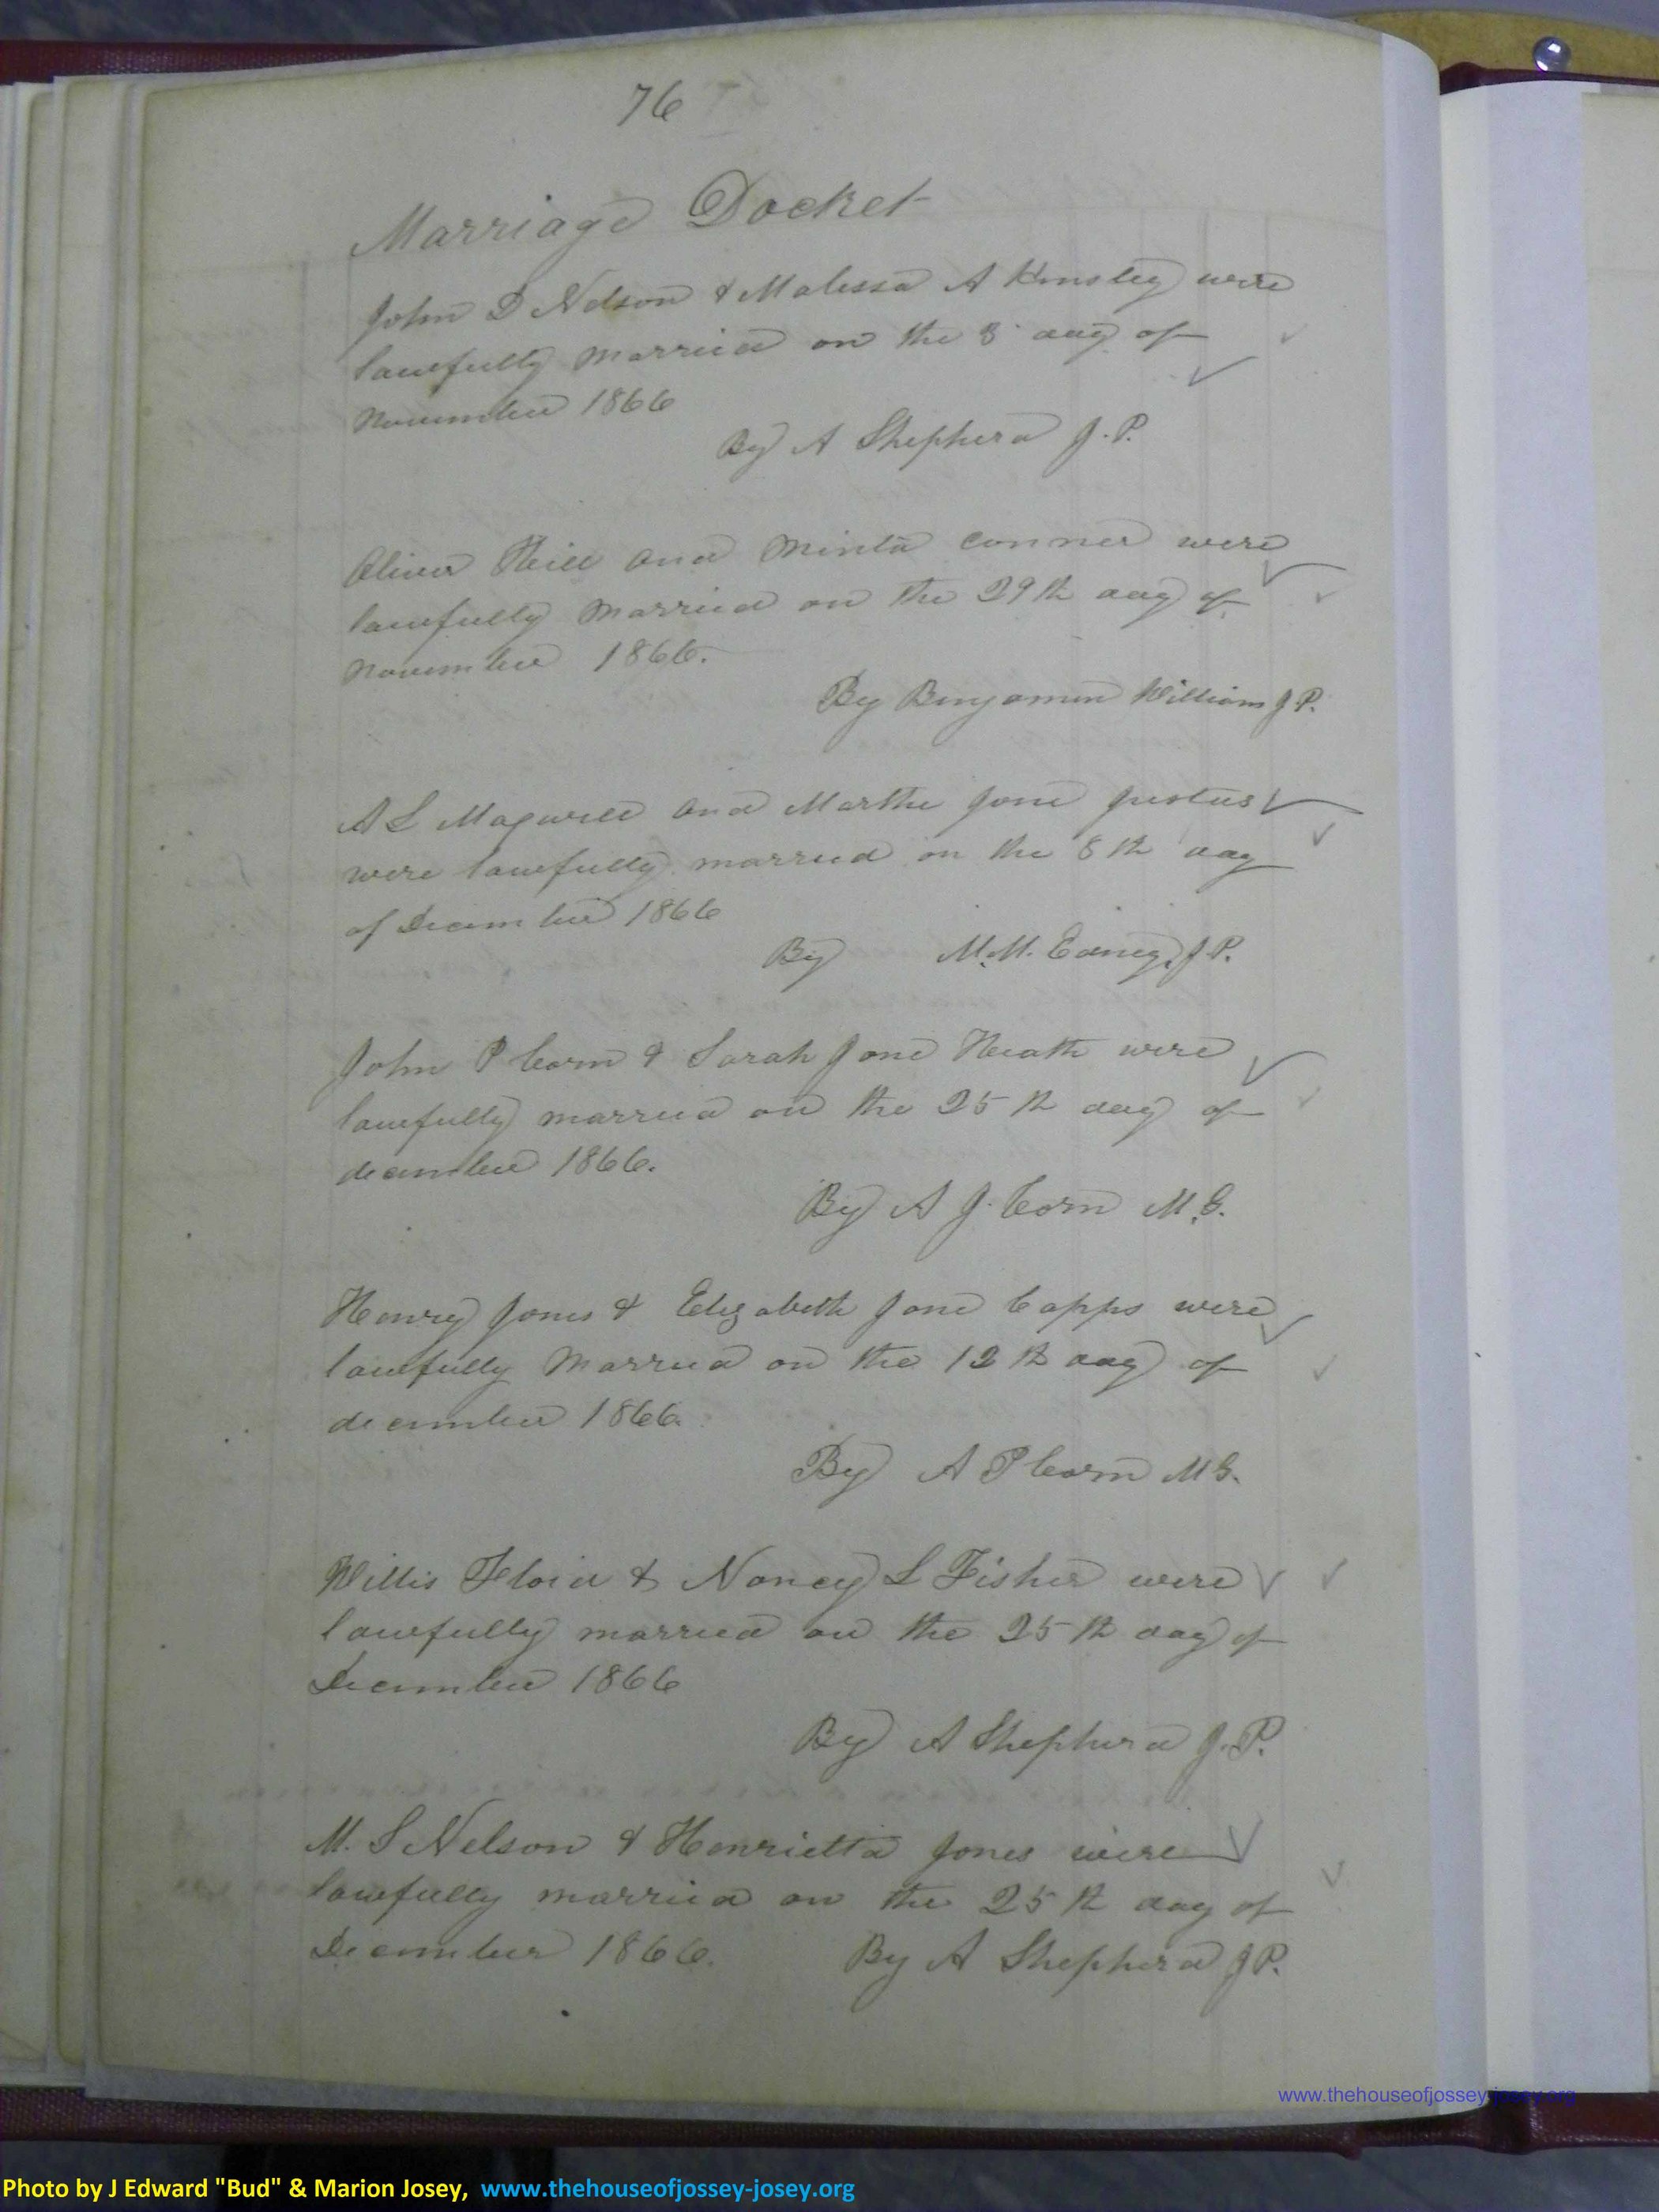 76
Marriage Docket
John D Nelson & Malissa A Kinsley were
lawfully married on the 8 day of
November 1866
By A Shepherd J. P.
Oliver Hill and Minta Conner were
lawfully Married on the 29th day of
November 1866.
By Benjamin William J P.
A L Magwire and Martha Jane Justus
were lawfully married on the 8th day
of December 1866
By M. M. Edney, J P.
John P Corn & Sarah Jane Heath were
lawfully married on the 25th day of
december 1866.
By A J. Corn M. G.
Henry Jones & Elizabeth Jane Capps were
lawfully Married on the 12th day of
december 1866.
By A P Corn M G.
Willis Floid & Nancy L Fisher were
lawfully married on the 25th day of
December 1866
By A Shepherd J. P.
M. S Nelson & Henrietta Jones were
lawfully married on the 25th day of
December 1866. By A Shepherd J P.
www.thehouseofjossey-josey.org
Photo by J Edward "Bud" & Marion Josey, www.thehouseofjossey-josey.org